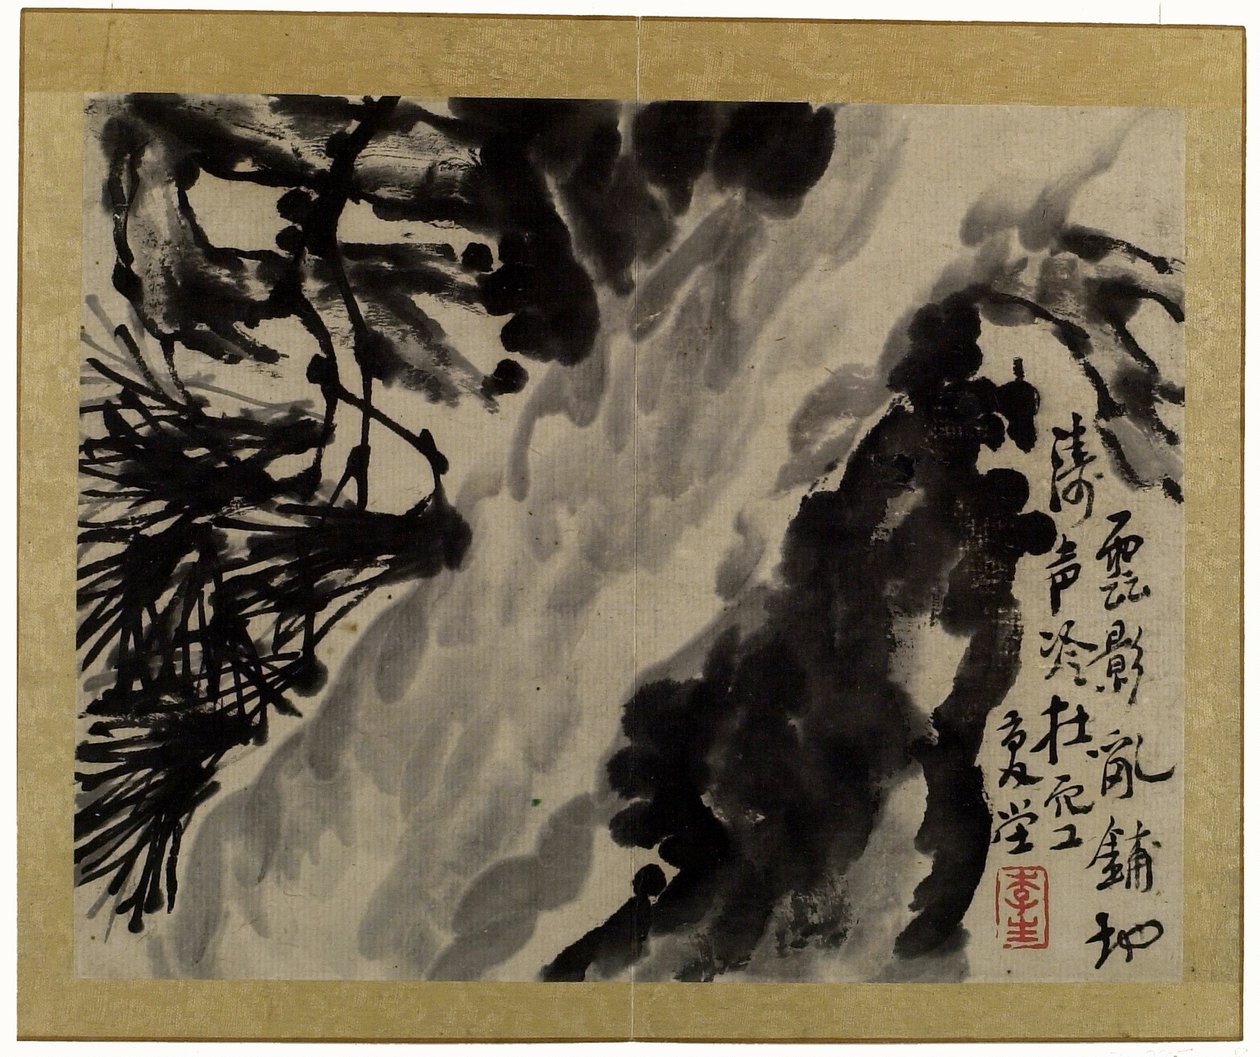 雲影亂鋪地
濤声冷在空
复堂
李生